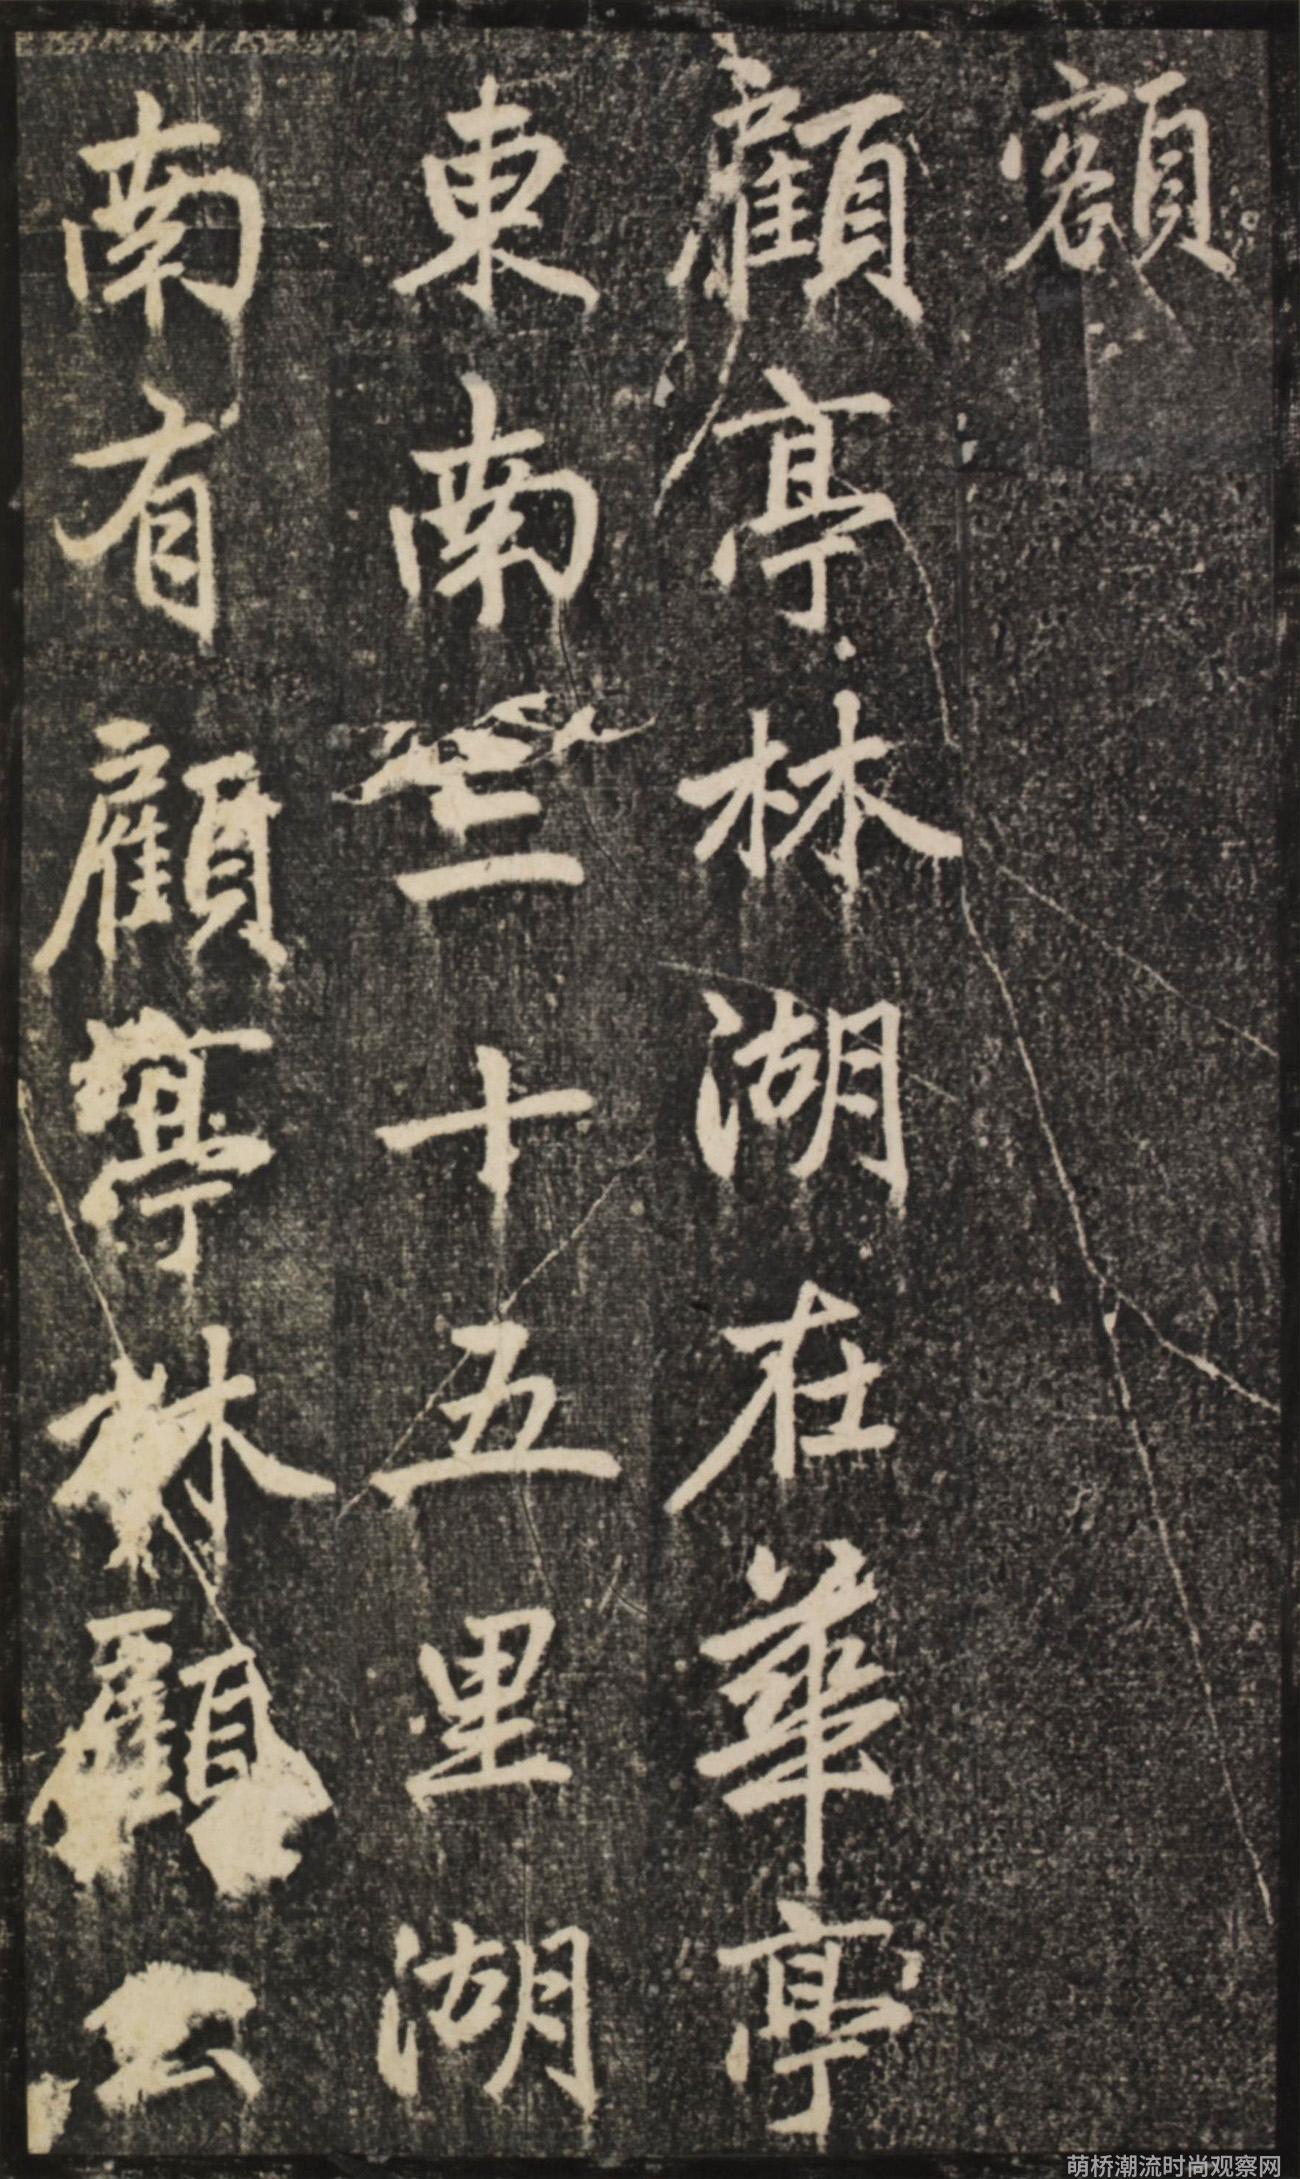 額
顧亭林湖在華亭
東南三十五里湖
南有顧亭林顧公
萌桥潮流时尚观察网